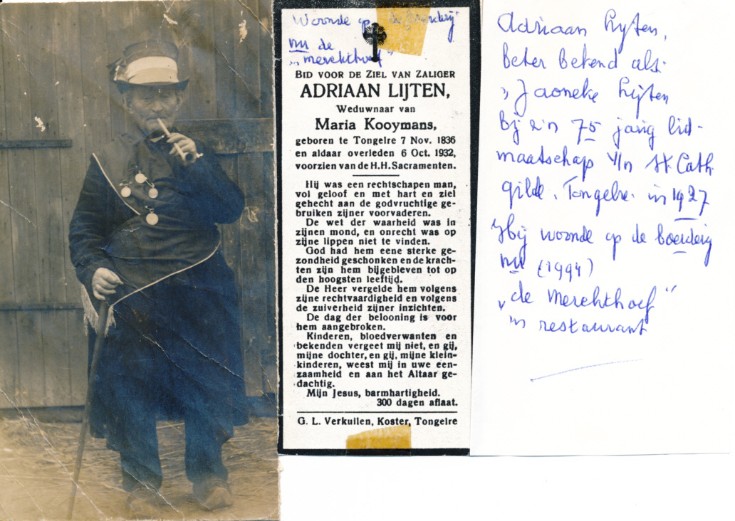 Woonde op "de boerderij"
nu de
"merckthoef"
BID VOOR DE ZIEL VAN ZALIGER
ADRIAAN LIJTEN,
Weduwnaar van
Maria Kooymans,
geboren te Tongelre 7 Nov. 1836
en aldaar overleden 6 Oct. 1932,
voorzien van de H.H. Sacramenten.
Hij was een rechtschapen man,
vol geloof en met hart en ziel
gehecht aan de godvruchtige ge-
bruiken zijner voorvaderen.
De wet der waarheid was in
zijnen mond, en onrecht was op
zijne lippen niet te vinden.
God had hem eene sterke ge-
zondheid geschonken en de krach-
ten zijn hem bijgebleven tot op
den hoogsten leeftijd.
De Heer vergelde hem volgens
zijne rechtvaardigheid en volgens
de zuiverheid zijner inzichten.
De dag der belooning is voor
hem aangebroken.
Kinderen, bloedverwanten en
bekenden vergeet mij niet, en gij,
mijne dochter, en gij, mijne klein-
kinderen, weest mij in uwe een-
zaamheid en aan het Altaar ge-
dachtig.
Mijn Jesus, barmhartigheid.
300 dagen aflaat.
G. L. Verkuilen, Koster, Tongelre
Adriaan Lijten,
beter bekend als
"Janneke Lijten
Bij z'n 75 jarig lid-
maatschap v/n St Cath
gilde. Tongelre. in 1927
Hij woonde op de boerderij
nu (1994)
"de merckthoef"
'n restaurant